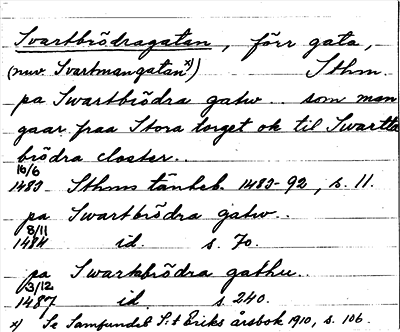 Svartbrödragatan, förr gata,
(nuv. Svartmangatan x)) Sthm.
pa Swartbrödra gatw.. som man
gaar fraa Stora torget ok til Swartta
brödra closter..
16/6
1483 Sthms tänkeb. 1483-92, s. 11.
pa Swartbrödra gatw..
8/11
1484 id. s. 70.
pa Swarkbrödra gathu..
3/12
1487 id. s. 240.
x) Se Samfundet S:t Eriks årsbok 1910, s. 106.